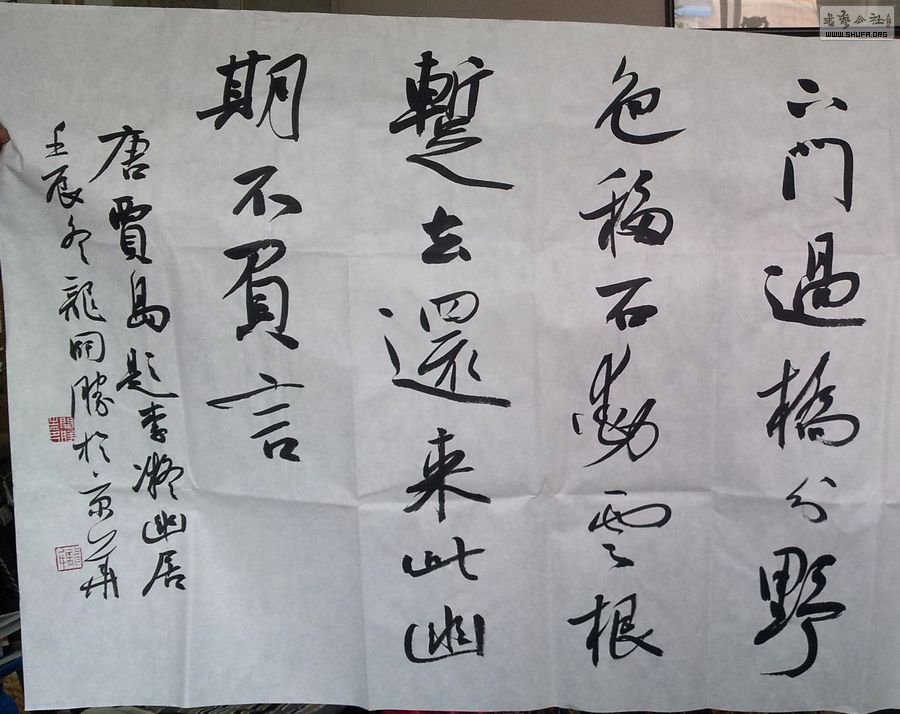 下門過橋分野
色移石動雲根
蹔去還来此幽
期不負言
唐賈島題李凝幽居
壬辰冬龍開勝於京華
書藝公社
WWW.SHUFA.ORG